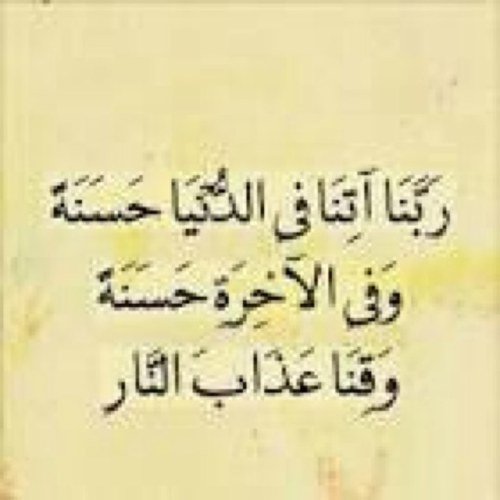 رَبَّنَا آتِنَا فِي الدُّنْيَا حَسَنَة
وَفِي الآخِرَةِ حَسَنَة
وَقِنَا عَذَابَ النَّار